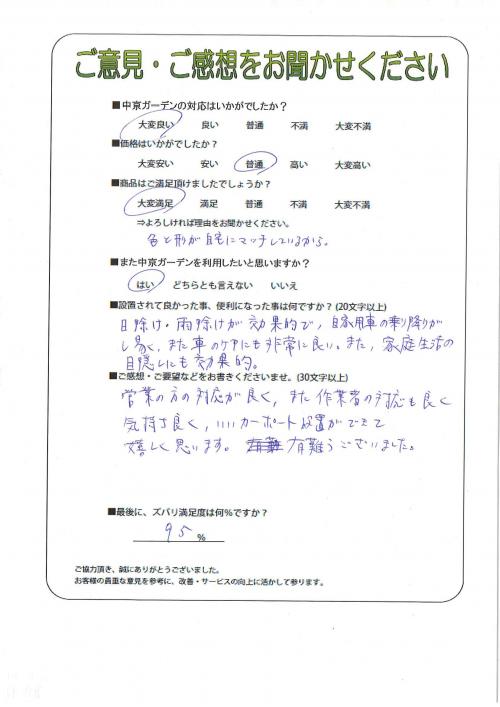 ご意見・ご感想をお聞かせください
■中京ガーデンの対応はいかがでしたか？
大変良い 良い 普通 不満 大変不満
■価格はいかがでしたか？
大変安い 安い 普通 高い 大変高い
■商品はご満足頂けましたでしょうか？
大変満足 満足 普通 不満 大変不満
⇒よろしければ理由をお聞かせください。
色と形が自宅にマッチしているから。
■また中京ガーデンを利用したいと思いますか？
はい どちらとも言えない いいえ
■設置されて良かった事、便利になった事は何ですか？(20文字以上)
日除け・雨除けが効果的で、自家用車の乗り降りが
し易く、また車のケアにも非常に良い。また、家庭生活の
目隠しにも効果的。
■ご感想・ご要望などをお書きくださいませ。(30文字以上)
営業の方の対応が良く、また作業者の対応も良く
気持ち良く、いいカーポート設置ができて
嬉しく思います。有難うございました。
■最後に、ズバリ満足度は何％ですか？
95 %
ご協力頂き、誠にありがとうございました。
お客様の貴重な意見を参考に、改善・サービスの向上に活かして参ります。